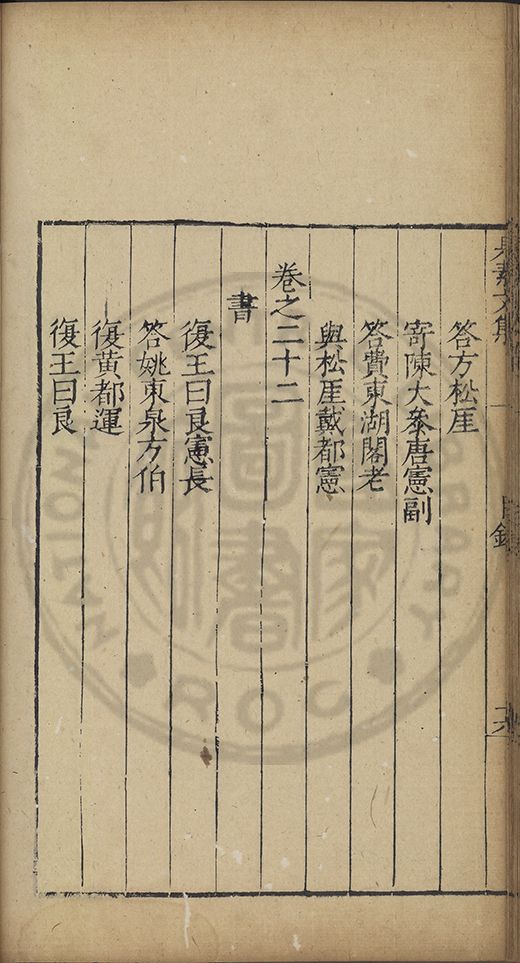 答方松厓
寄陳大叅唐憲副
答費東湖閣老
與松厓戴都憲
卷之二十二
書
復王曰良憲長
答姚東泉方伯
復黃都運
復王曰良
文集
目錄